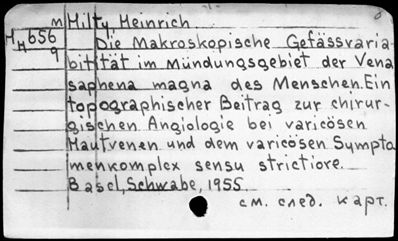 m Milty Heinrich
M 656 Die Makroskopische Gefässvaria-
M 9 bität im Mündungsgebiet der Vena
saphena magna des Menschen. Ein
topographischer Beitrag zur chirur-
gischen Angiologie bei varicösen
Hautvenen und dem varicösen Sympto
menkomplex sensu strictiore.
Basel, Schwabe, 1955.
см. след. карт.